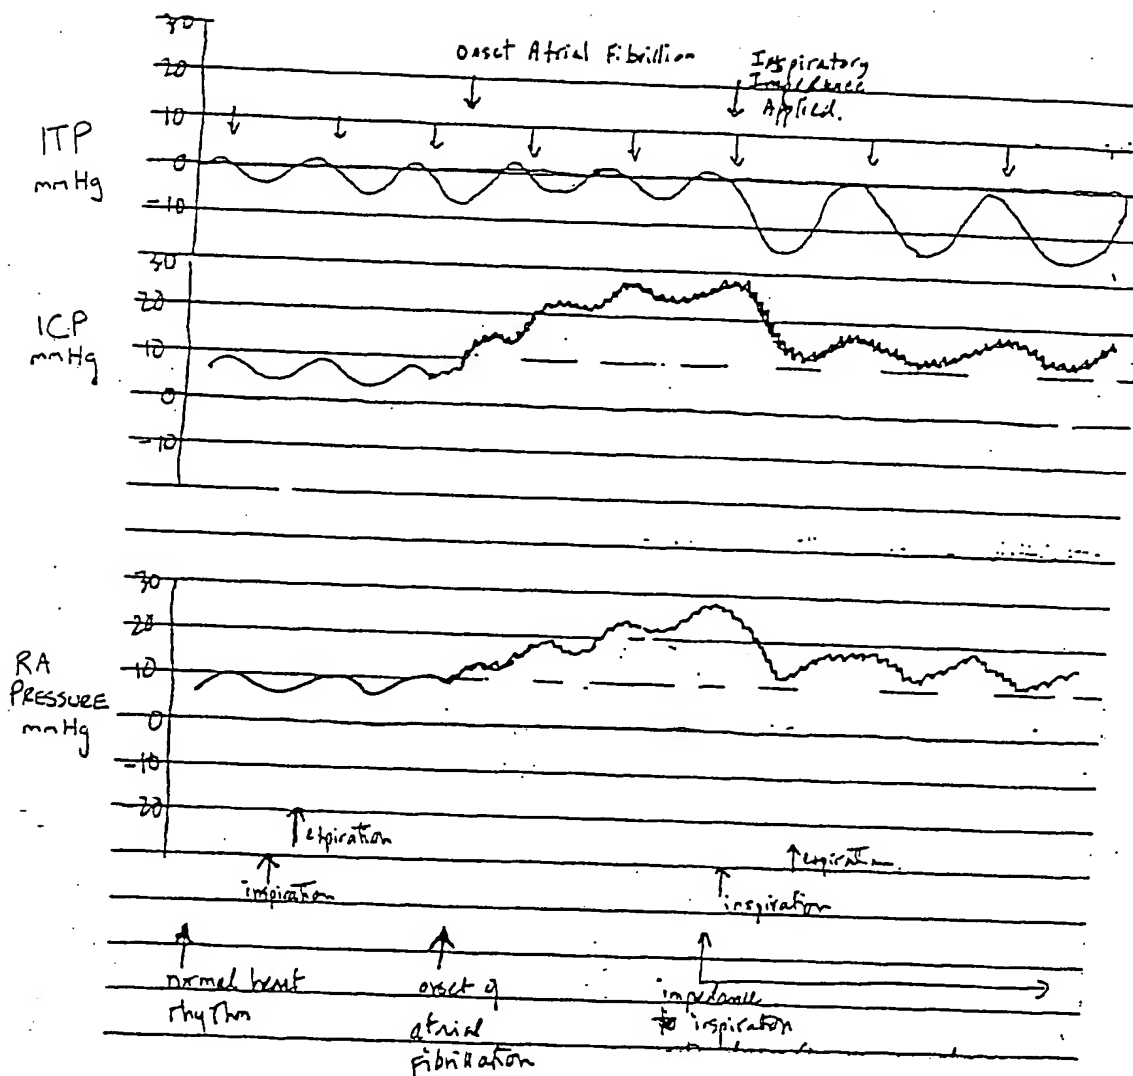 30
20
10
0
-10
ITP
mmHg
Onset Atrial Fibrillion
Inspiratory
Impedance
Applied.
30
20
10
0
-10
ICP
mmHg
30
20
10
0
-10
20
RA
PRESSURE
mmHg
expiration
inspiration
expiration
inspiration
normal beat
rhythm
onset of
atrial
Fibrillation
impedance
to inspiration